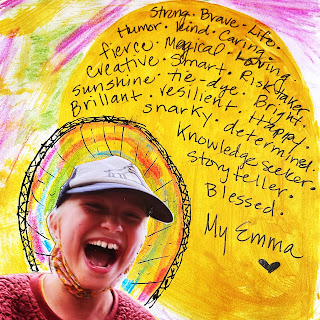 Strong. Brave. Life.
Humor. Kind. Caring.
fierce. Magical. Loving.
creative. Smart. Risk taker.
sunshine. tie-dye. Bright.
Brillant. resilient. Happy.
snarky. determined.
Knowledge seeker.
storyteller.
Blessed.
My Emma